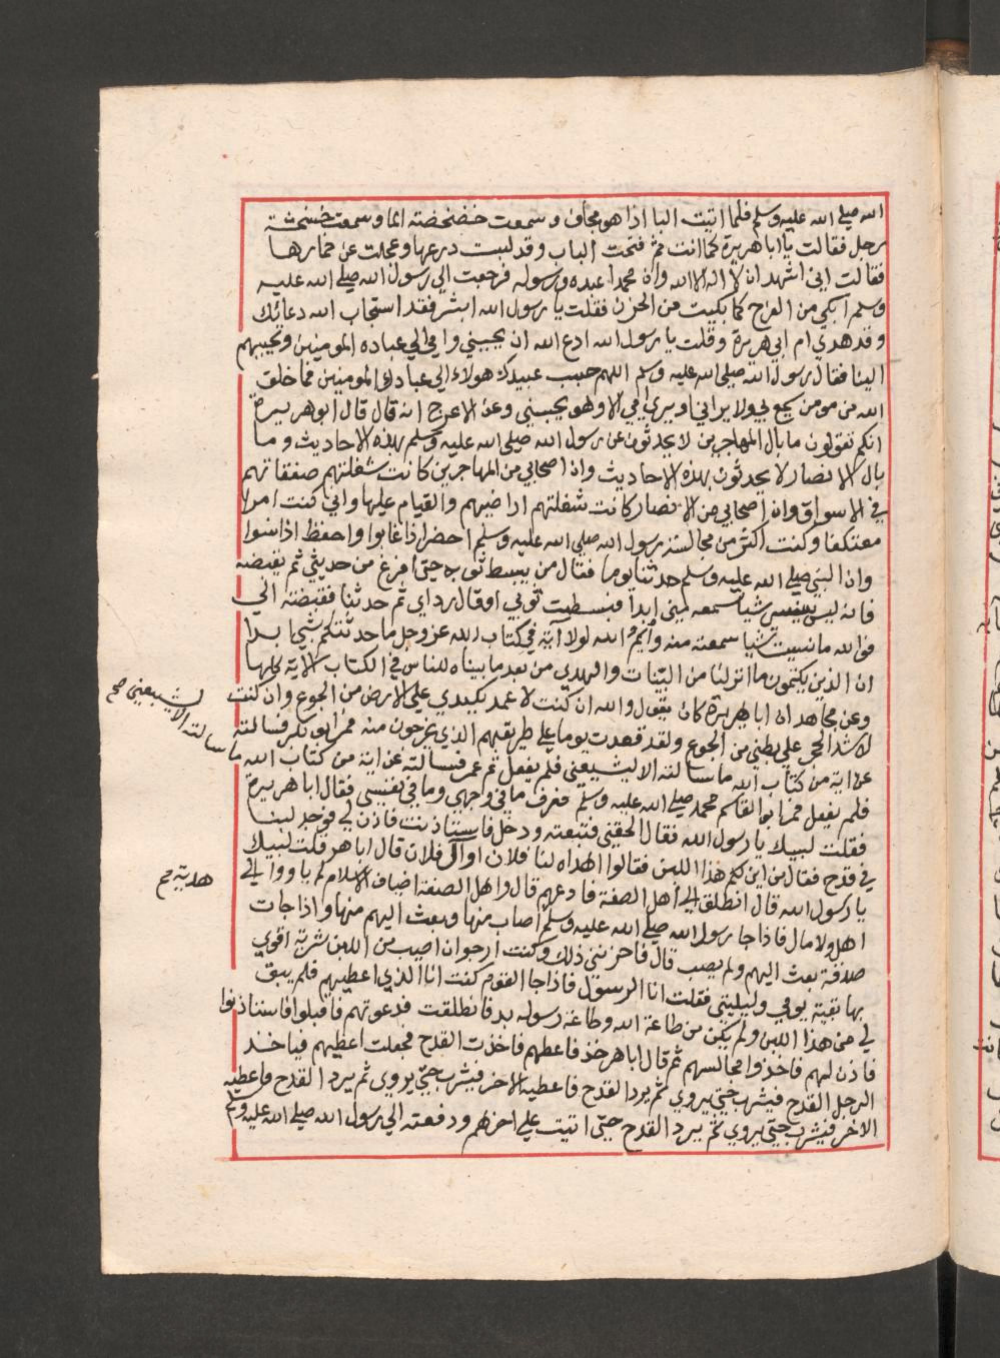 الله صلى الله عليه وسلم فلما اتيت الباب اذا هو مجاف وسمعت خضخضة الماء وسمعت خشخشة
رجل فقالت يا ابا هريرة كما انت ثم فتحت الباب وقد لبست درعها وعجلت عن خمارها
فقالت اني اشهد ان لا اله الا الله وان محمدا عبده ورسوله فرجعت الي رسول الله صلى الله عليه
وسلم ابكي من الفرح كما بكيت من الحزن فقلت يا رسول الله ابشر فقد استجاب الله دعائك
وقد هدي ام ابي هريرة وقلت يا رسول الله ادع الله ان يحببني وامي الي عباده المومنين ويحببهم
الينا فقال رسول الله صلى الله عليه وسلم اللهم حبب عبيدك هولاء الي عبادك المومنين فما خلق
الله من مومن يسمع بي ولا يراني او يري امي الا وهو يحبني وعن الاعرج انه قال قال ابو هريرة
انكم تقولون ما بال المهاجرين لا يحدثون عن رسول الله صلى الله عليه وسلم بهذه الاحاديث وما
بال الانصار لا يحدثون بهذه الاحاديث وان اصحابي من المهاجرين كانت شغلتهم صفقاتهم
في الاسواق وان اصحابي من الانصار كانت شغلتهم اراضيهم والقيام عليها واني كنت امرا
معتكفا وكنت اكثر من مجالسة رسول الله صلى الله عليه وسلم احضر اذا غابوا واحفظ اذا نسوا
وان النبي صلى الله عليه وسلم حدثنا يوما فقال من يبسط ثوبه حتي افرغ من حديثي ثم يقبضه
فانه ليس ينسي شيا سمعه مني ابدا فبسطت ثوبي او قال رداي ثم حدثنا فقبضته الي
فوالله ما نسيت شيا سمعته منه وايم الله لولا آية في كتاب الله عز وجل ما حدثتكم بشي ابدا
ان الذين يكتمون ما انزلنا من البينات والهدي من بعد ما بيناه للناس في الكتاب الآية كلها
وعن مجاهد ان ابا هريرة كان يقول والله ان كنت لاعمد بكبدي علي الارض من الجوع وان كنت
لاشد الحجر علي بطني من الجوع ولقد قعدت يوما علي طريقهم الذي يخرجون منه فمر ابو بكر فسالته
عن اية من كتاب الله ما سالته الا ليشبعني فلم يفعل ثم عمر فسالته عن اية من كتاب الله ما سالته الا ليشبعني صح
فلم يفعل فمر ابو القاسم محمد صلى الله عليه وسلم فعرف ما في وجهي وما في نفسي فقال ابا هريرة
فقلت لبيك يا رسول الله فقال الحقني فتبعته ودخل فاستاذنت فاذن لي فوجد لبنا
في قدح فقال من اين لكم هذا اللبن فقالوا اهداه لنا فلان او آل فلان قال ابا هر قلت لبيك
يا رسول الله قال انطلق الي اهل الصفة فادعهم قال واهل الصفة اضياف الاسلام لم ياووا الي
اهل ولا مال فاذا جا رسول الله صلى الله عليه وسلم هدية صح اصاب منها وبعث اليهم منها واذا جات
صدقة بعث اليهم ولم يصب قال فاحزنني ذلك وكنت ارجو ان اصيب من اللبن شربة اقوي
بها بقية يومي وليلتي فقلت انا الرسول فاذا جا القوم كنت انا الذي اعطيهم فلم يبق
لي من هذا اللبن ولم يكن من طاعة الله وطاعة رسوله بد فانطلقت فدعوتهم فاقبلوا فاستاذنوا
فاذن لهم فاخذوا مجالسهم ثم قال ابا هر خذ فاعطهم فاخذت القدح فجعلت اعطيهم فياخذ
الرجل القدح فيشرب حتي يروي ثم يرد القدح فاعطيه الاخر فيشرب حتي يروي ثم يرد القدح فاعطيه
الاخر فيشرب حتي يروي ثم يرد القدح حتي اتيت علي اخرهم ودفعته الي رسول الله صلى الله عليه وسلم